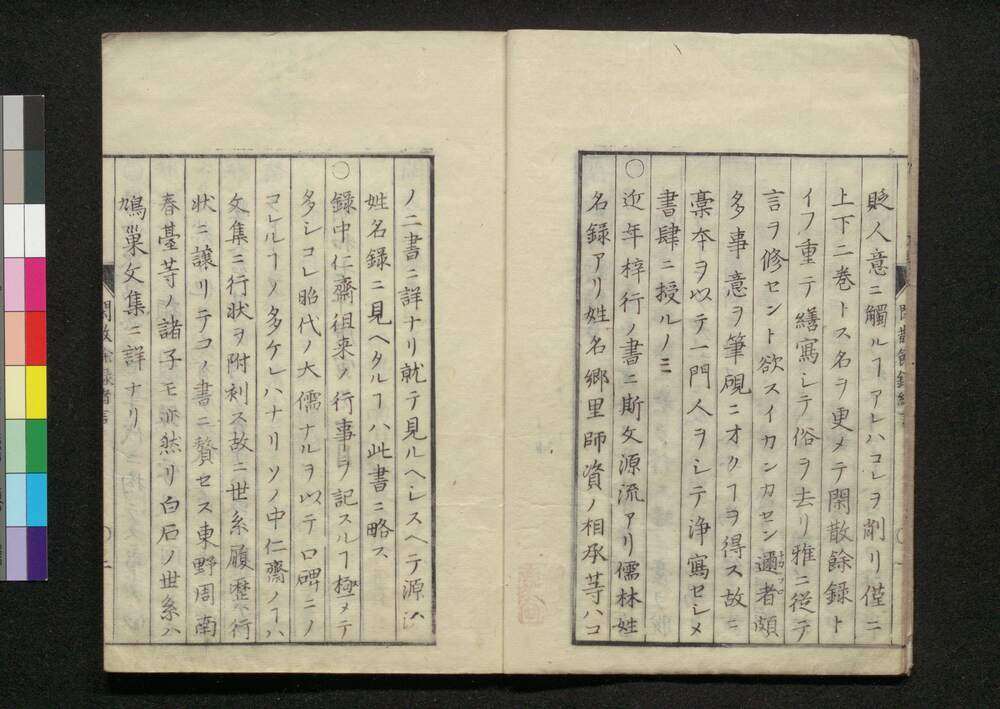 貶人意ニ觸ルヿアレハコレヲ削リ僅ニ
上下二巻トス名ヲ更メテ閑散餘録ト
イフ重テ繕寫シテ俗ヲ去リ雅ニ從テ
言ヲ修セント欲スイカンカセン邇者頗
多事意ヲ筆硯ニオクヿヲ得ス故ニ
稾本ヲ以テ一門人ヲシテ浄寫セシメ
書肆ニ授ルノミ
○近年梓行ノ書ニ斯文源流アリ儒林姓
名録アリ姓名郷里師資ノ相承等ハコ
ノ二書ニ詳ナリ就テ見ルヘシスヘテ源流
姓名録ニ見ヘタルヿハ此書ニ略ス
○録中仁齋徂来ノ行事ヲ記スルヿ極メテ
多シコレ昭代ノ大儒ナルヲ以テ口碑ニノ
コレルヿノ多ケレハナリソノ中仁齋ノヿハ
文集ニ行状ヲ附刻ス故ニ世系履歴行
状ニ譲リテコノ書ニ贅セス東野周南
春臺等ノ諸子モ亦然リ白石ノ世系ハ
鳩巣文集ニ詳ナリ